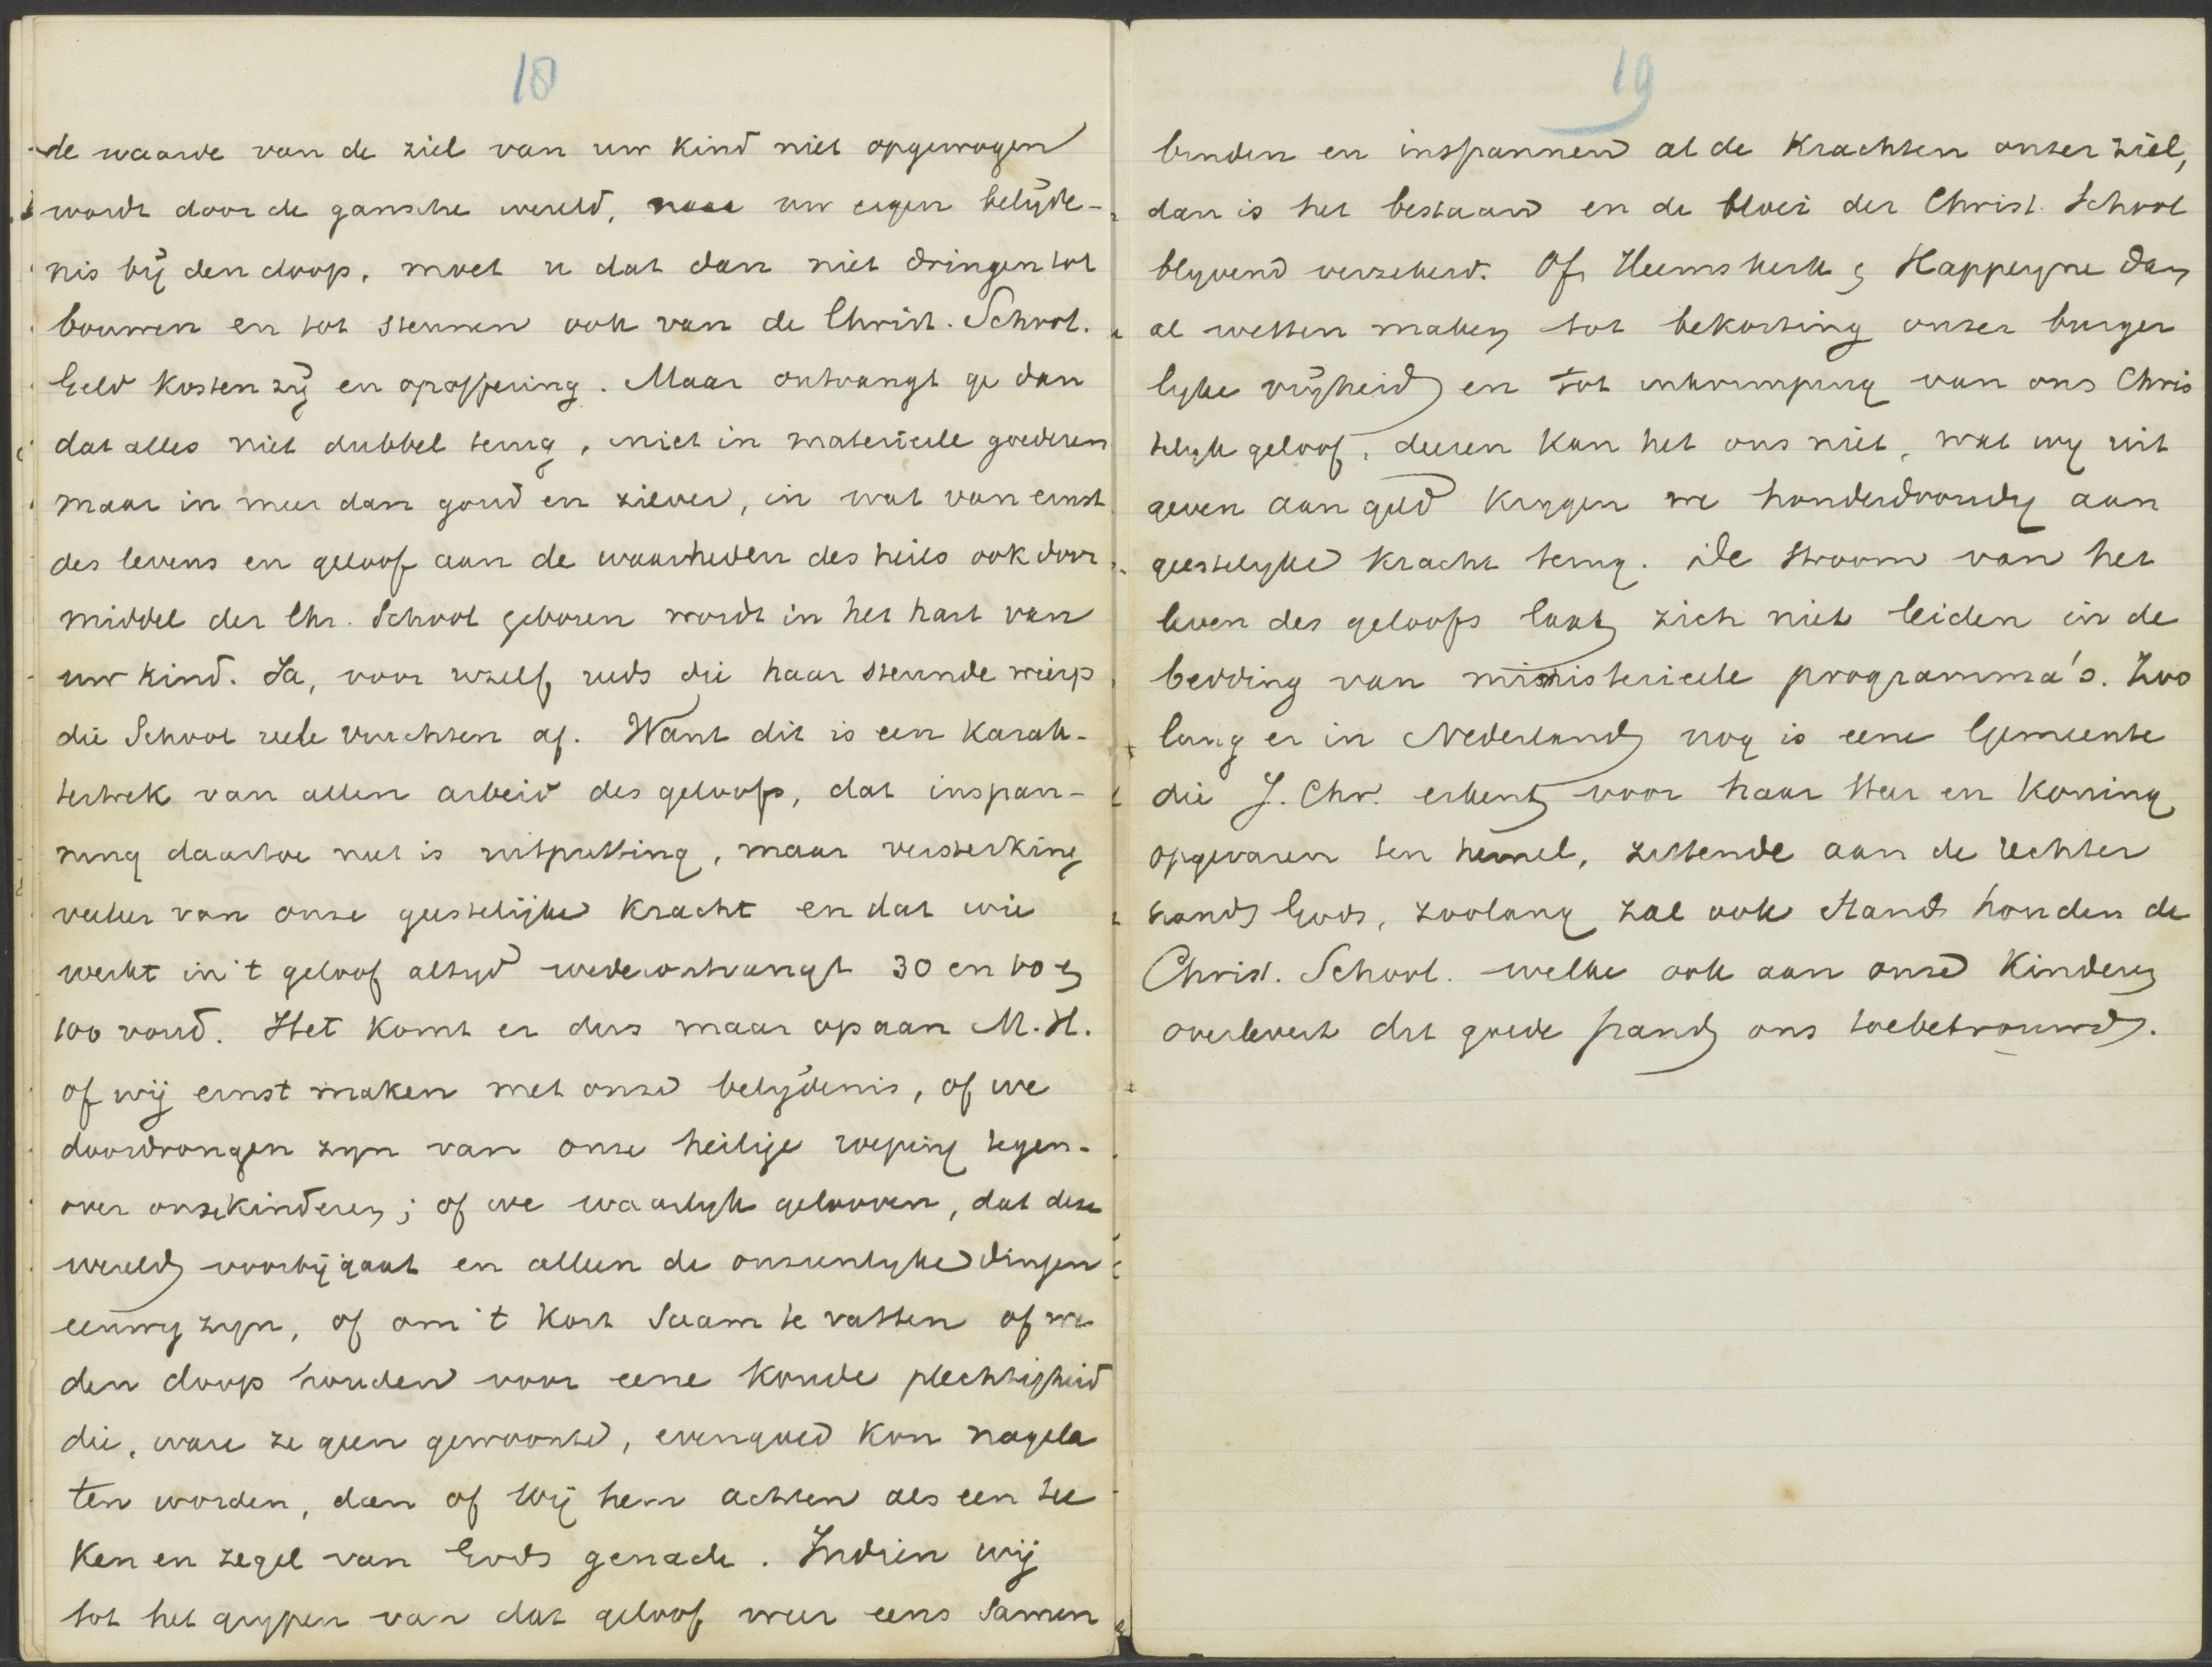 18
de waarde van de ziel van uw kind niet opgewogen
wordt door de gansche wereld, naar uw eigen belijde-
nis bij den doop, moet u dat dan niet dringen tot
bouwen en tot steunen ook van de Christ. School.
Geld kosten zij en opoffering. Maar ontvangt ge dan
dat alles niet dubbel terug, niet in materieele goederen
maar in meer dan goud en zilver, in wat van ernst
des levens en geloof aan de waarheden des heils ook door
middel der Chr. School geboren wordt in het hart van
uw kind. Ja, voor uzelf reeds die haar steunde wierp
die School reële vruchten af. Want dit is een karak-
tertrek van allen arbeid des geloofs, dat inspan-
ning daartoe niet is uitputting, maar versterking
veeleer van onze geestelijke kracht en dat wie
werkt in 't geloof altijd wederontvangt 30 en 60 en
100 voud. Het komt er dus maar op aan M.H.
of wij ernst maken met onze belijdenis, of we
doordrongen zijn van onze heilige roeping tegen-
over onze kinderen; of we waarlijk gelooven, dat deze
wereld voorbijgaat en alleen de onzienlijke dingen
eeuwig zijn, of om 't kort saam te vatten of we
den doop houden voor eene koude plechtigheid
die, ware ze geen gewoonte, evengoed kon nagela
ten worden, dan of wij hem achten als een tee
ken en zegel van Gods genade. Indien wij
tot het grijpen van dat geloof weer eens samen
19
binden en inspannen al de krachten onzer ziel,
dan is het bestaan en de bloei der Christ. School
blijvend verzekerd. Of Heemskerk en Kappeyne dan
al wetten maken tot bekorting onzer burger
lijke vrijheid en tot inkrimping van ons Chris
telijk geloof, deeren kan het ons niet, wat wij uit
geven aan geld krijgen we honderdvoudig aan
geestelijke kracht terug. De stroom van het
leven des geloofs laat zich niet leiden in de
bedding van ministerieele programma's. Zoo
lang er in Nederland nog is eene Gemeente
die J. Chr. erkent voor haar Heer en Koning
opgevaren ten hemel, zittende aan de rechter
hand Gods, zoolang zal ook stand houden de
Christ. School. welke ook aan onze kinderen
overlevert dit goede pand ons toebetrouwd.